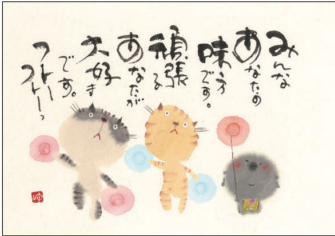 みんな
あなたの
味方です。
頑張る
あなたが
大好き
です。
フレー
フレーっ